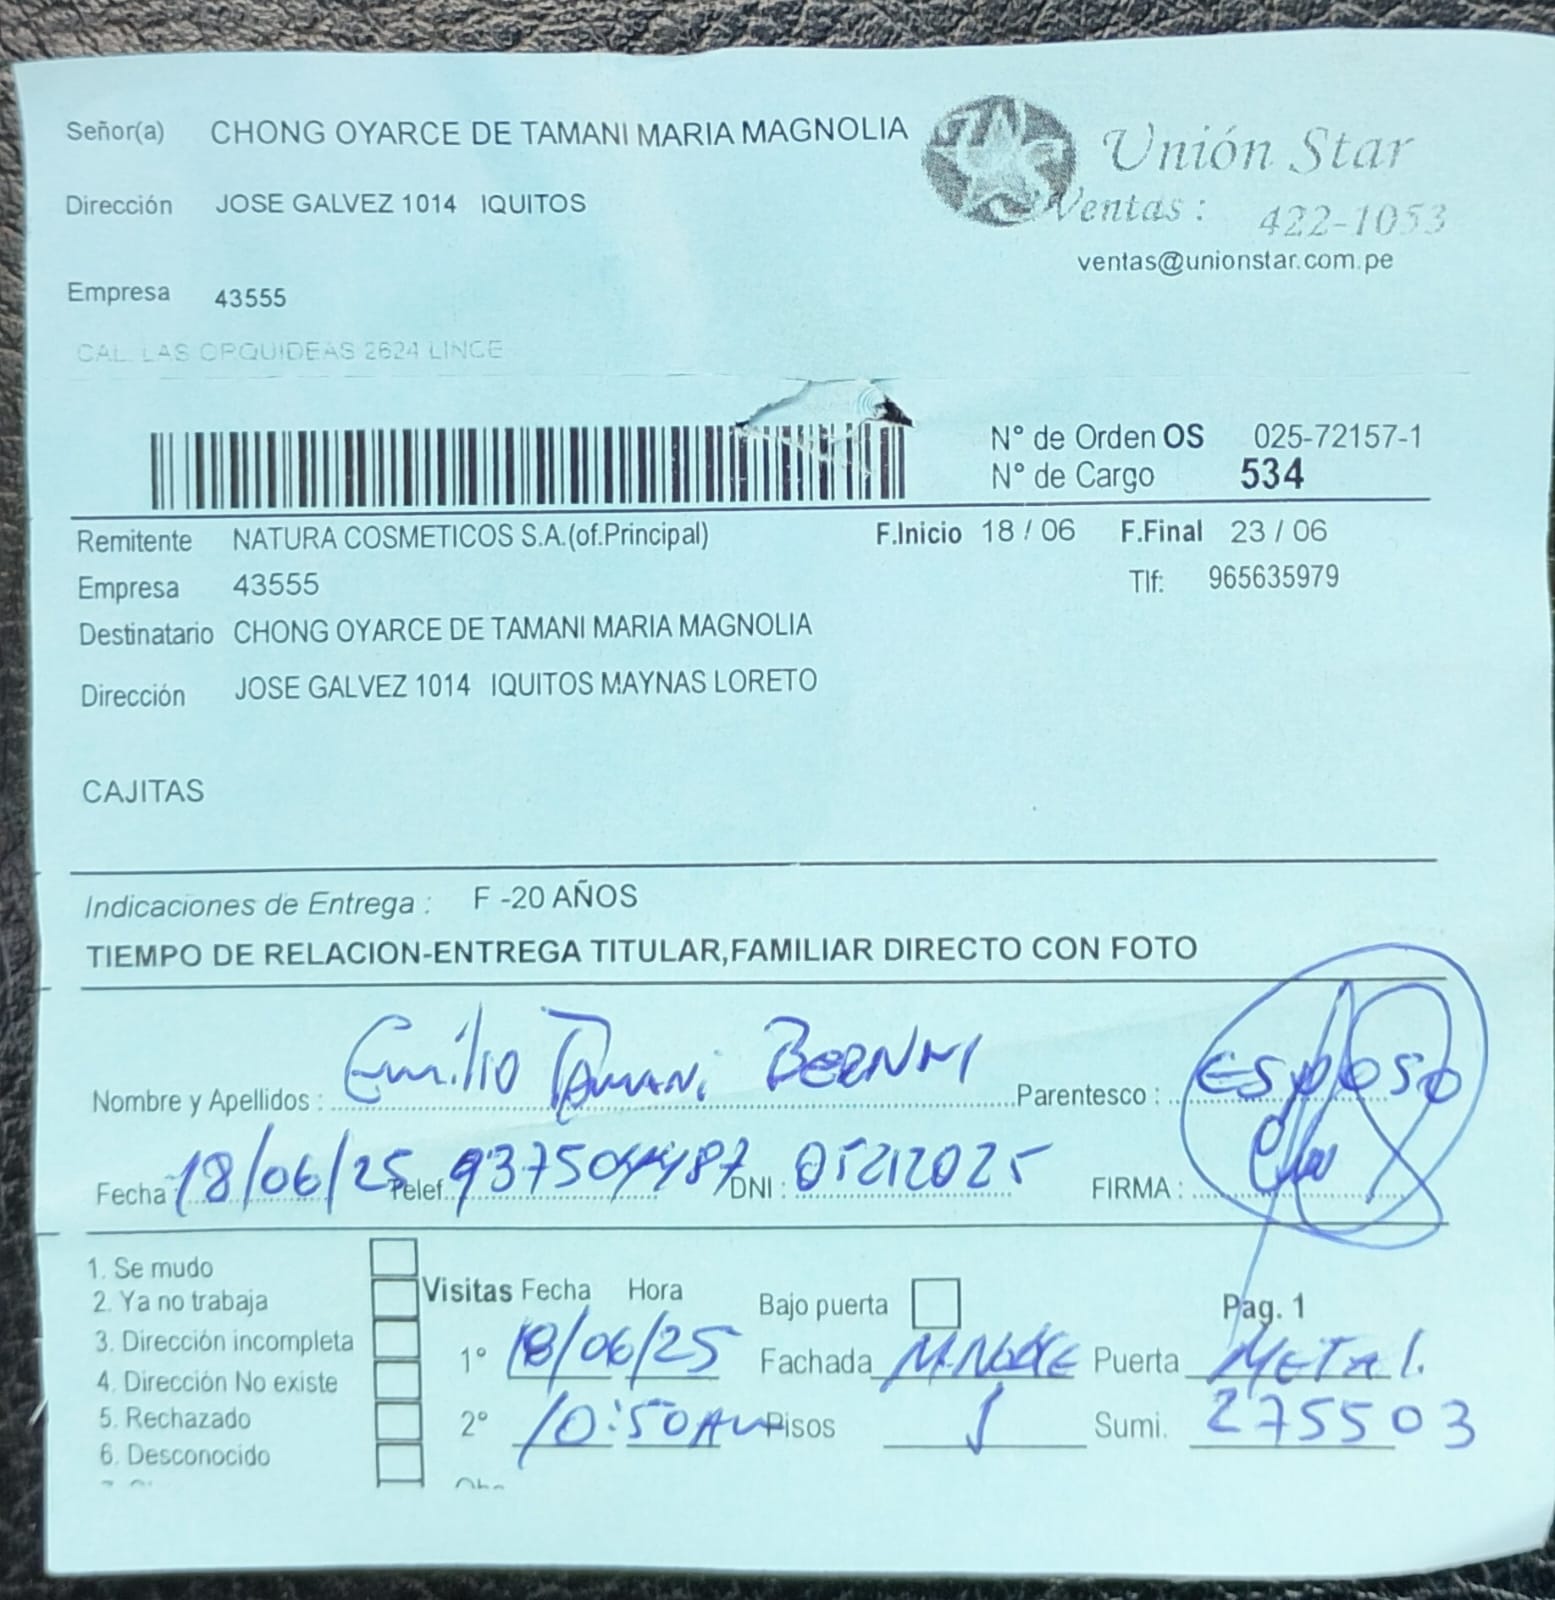 Señor(a) CHONG OYARCE DE TAMANI MARIA MAGNOLIA
Unión Star
Dirección JOSE GALVEZ 1014 IQUITOS
Ventas : 422-1053
ventas@unionstar.com.pe
Empresa 43555
CAL. LAS ORQUIDEAS 2624 LINCE
N° de Orden OS 025-72157-1
N° de Cargo 534
Remitente NATURA COSMETICOS S.A.(of.Principal) F.Inicio 18 / 06 F.Final 23 / 06
Empresa 43555 Tlf: 965635979
Destinatario CHONG OYARCE DE TAMANI MARIA MAGNOLIA
Dirección JOSE GALVEZ 1014 IQUITOS MAYNAS LORETO
CAJITAS
Indicaciones de Entrega : F -20 AÑOS
TIEMPO DE RELACION-ENTREGA TITULAR,FAMILIAR DIRECTO CON FOTO
Nombre y Apellidos : Emilio Tamani Parentesco : Esposo
Fecha : 18/06/25 Telef. DNI : 05212025 FIRMA :
1. Se mudo
2. Ya no trabaja Visitas Fecha Hora Bajo puerta Pag. 1
3. Dirección incompleta 1° 18/06/25 Fachada Puerta METAL
4. Dirección No existe
5. Rechazado 2° 10:50 AM Pisos 1 Sumi. 275503
6. Desconocido